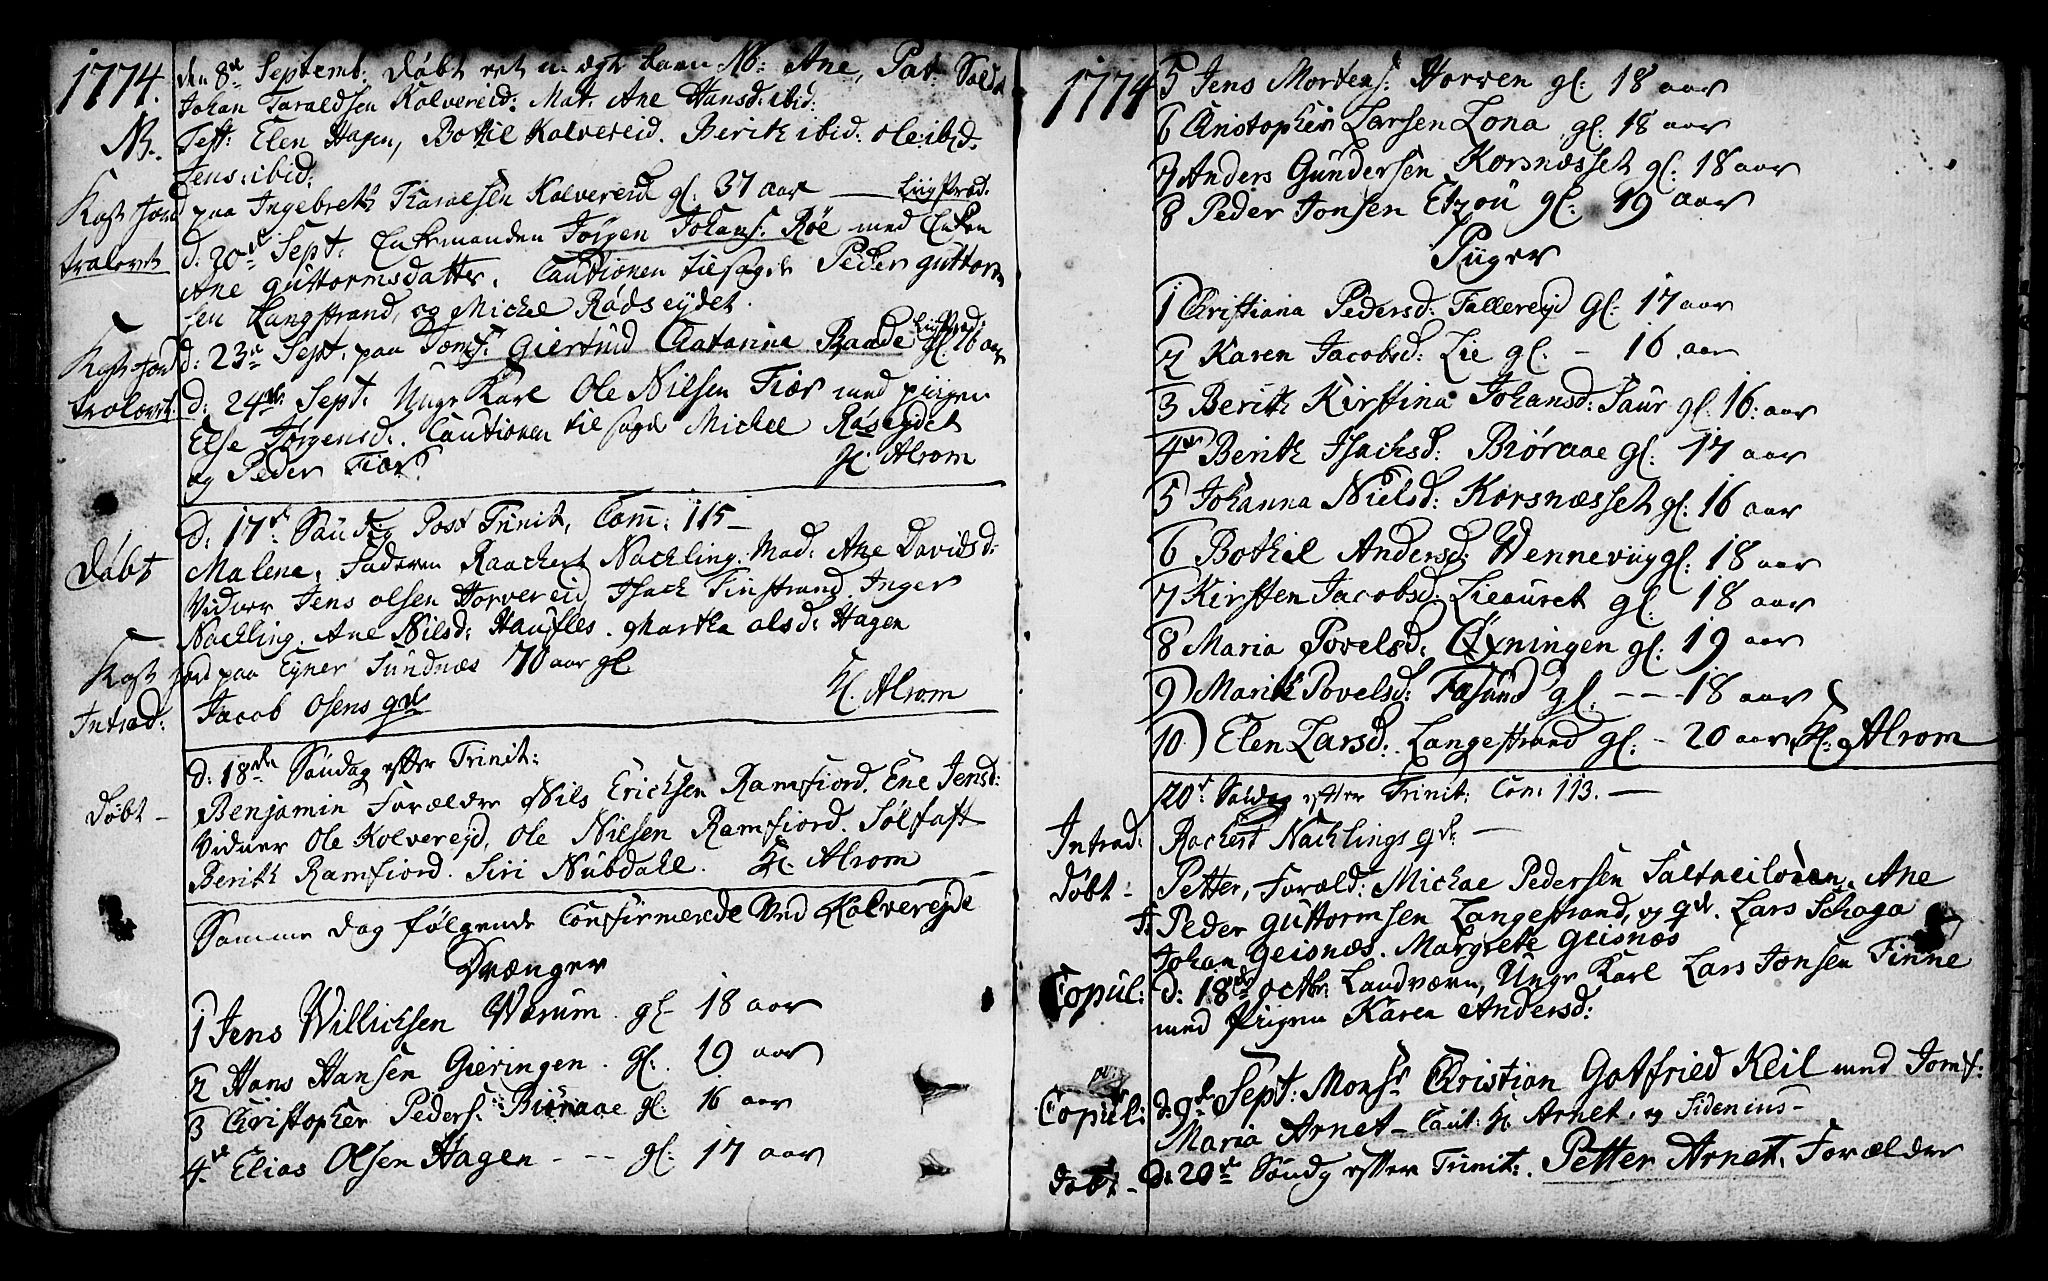 1774. den 8de Septemb: døbt et u-ægte barn NB: Ane, Pat: Solda
Johan Taraldsen Kolvereid: Mat. Ane Hansd: ibid:
NB. Test: Elen Hagen, Bothil Kolvereid. Berith ibid: Ole ibid.
Jens: ibid:
Kast Jord paa Ingebreth Taralsen Kolvereid gl. 37 aar — Liigpræd:
trolovet d: 20de Sept. Enkemanden Jørgen Johans: Røe med Enken
Ane Guttormsdatter. Cautionen tilsagde Peder Guttorm
sen Langstrand, og Michel Rødseydet.
Kast Jord d: 23de Sept. paa Jomf: Giertrud Catarina Raade Liigpræd: gl: 26 aar
trolovet d: 24de Sept. Unge Karl Ole Nielsen Fiær med pigen
Else Jørgensd: Cautionen tilsagde Michel Røseydet
og Peder Fiær. H. Alrom
D: 17de Søndag Post Trinit, Com: 115 —
Døbt Malene, Faderen Raachert Nachling. Mod: Ane Davidsd:
Vidner Jens Olsen Horvereid, Isach Finstrand. Inger
Nachling. Ane Nilsd: Haufles. Martha Olsd: Hagen
Kast Jord paa Eyner Sundnæs 70 aar gl.
Introd: Jacob Osens qde H. Alrom
D: 18de Søndag efter Trinit:
Døbt — Benjamin Forældre Nils Ericksen Ramfiord. Ene Jensd:
Vidner Ole Kolvereyd, Ole Nielsen Ramfiord. Sølfast
Berith Ramfiord. Siri Nubdahl. H. Alrom
Samme dag følgende Confirmerede ved Kolvereyde
Drænger
1 Jens Willichsen Wærum. gl. 18 aar
2 Hans Hansen Gieringen. gl. 19 aar
3 Christopher Peders: Biøraae gl. 16 aar
4de Elias Olsen Hagen - - - gl: 17 aar
1774 5 Jens Mortens: Horven gl: 18 aar
6 Christopher Larsen Lona gl: 18 aar
7 Anders Gundersen Korsnæsset gl: 18 aar
8 Peder Jonsen gl: 19 aar
Piiger
1 Christiana Pedersd: Fallereyd gl: 17 aar
2 Karen Jacobsd: Lie gl. — 16 aar
3 Berith Kirstina Johansd: Saur gl: 16: aar
4de Berith Isachsd: Biøraae gl. 17 aar
5 Johanna Nielsd: Korsnæsset gl: 16 aar
6 Bothil Andersd: Wennevug gl: 18 aar
7 Kirsten Jacobsd: Lieauret gl. 18 aar
8 Maria Povelsd: Øxningen gl: 19 aar
9) Marith Povelsd: Fasund gl. - - - 18 aar
10) Elen Larsd: Langestrand gl: - 20 aar H: Alrom
20de Søndag efter Trinit: Com: 113. —
Introd: Rachert Nachlings qde —
Døbt — Petter, Foræld: Michae Pedersen , Ane
T: Peder Guttormsen Langestrand, og qde. Lars Schaga
Johan Geisnæs. Margrete Geisnæs
Copul: d: 18de Octbr: Landværn, Unge Karl Lars Jonsen Finne
med Pigen Karen Andersd:
Copul: d: 9de Sept: Monsr Christian Gotfried Keil med Jomf:
Maria Arnet — Caut: H. Arnet. og Sidenius —
Døbt — D: 20de Søndg efter Trinit: Petter Arnet. Forældre